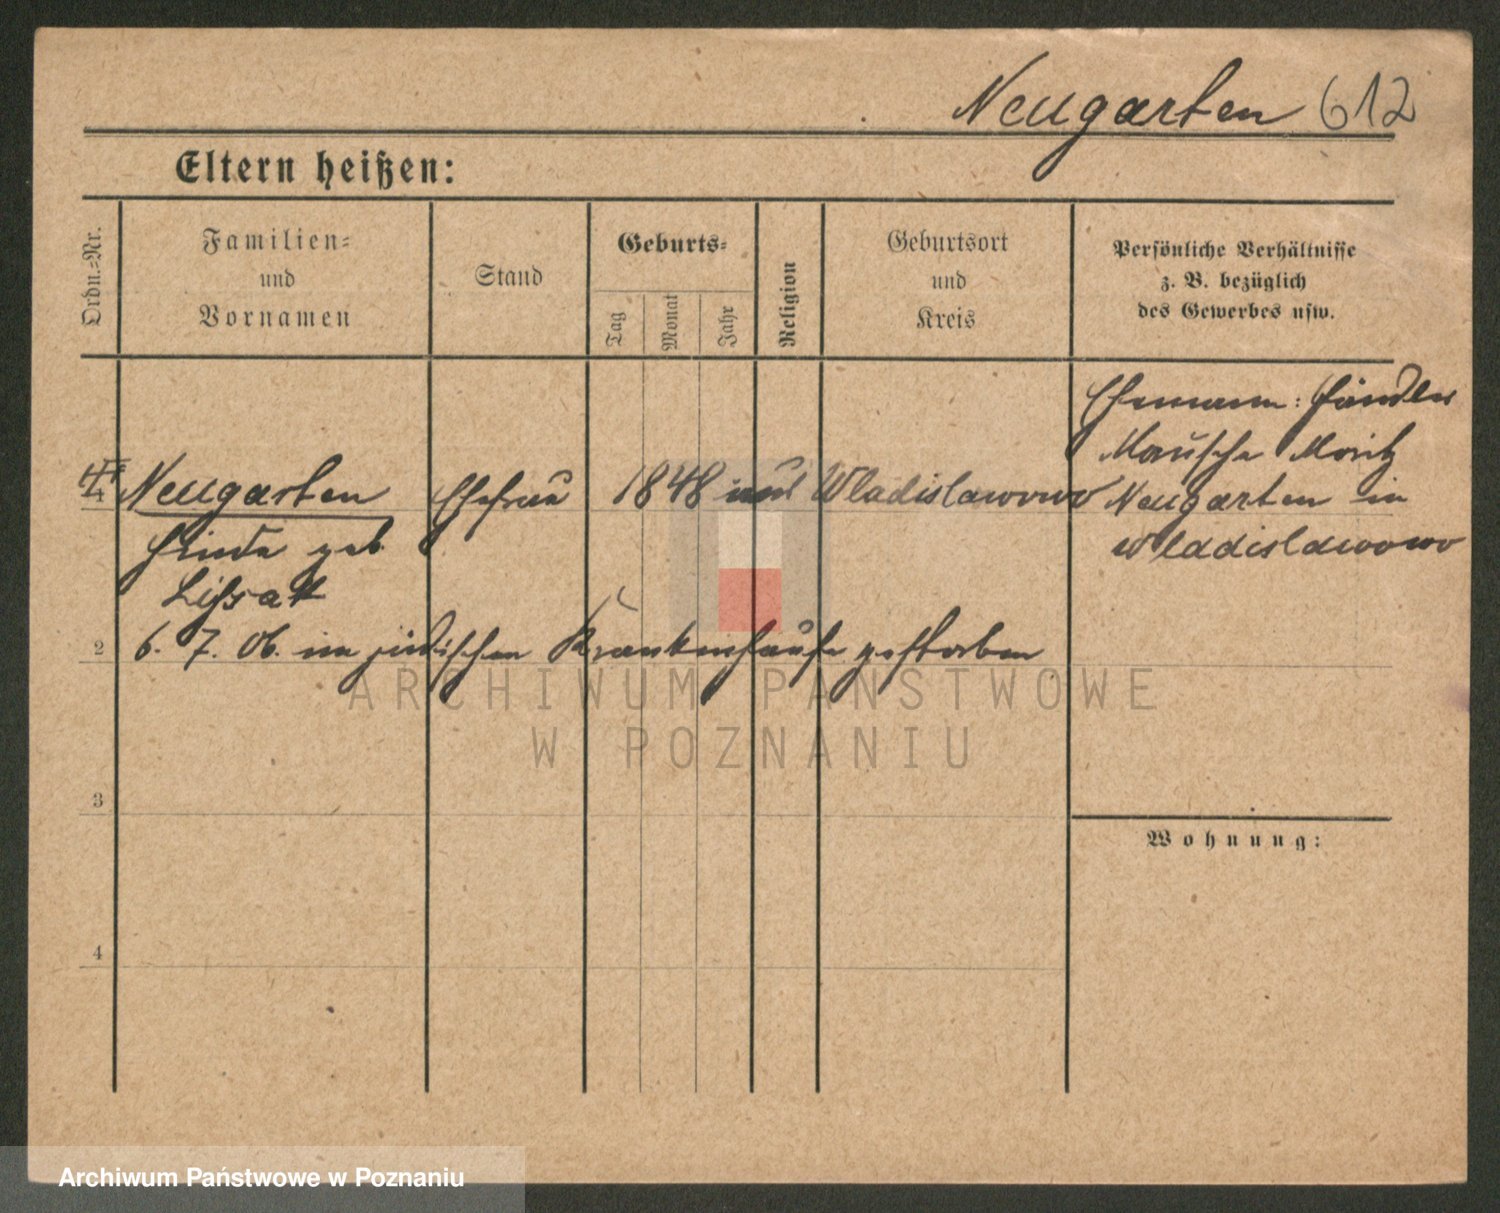 Neugarten 612
Eltern heißen:
Ordn.-Nr.
Familien-
und
Vornamen
Stand
Geburts-
Tag
Monat
Jahr
Religion
Geburtsort
und
Kreis
Persönliche Verhältnisse
z. B. bezüglich
des Gewerbes usw.
Ehemann: Händler
Mausche Moritz
Neugarten Ehefrau 1848 Wladislawowo Neugarten in
Wladislawowo
geb.
2 6. 7. 06. im jüdischen Krankenhause gestorben
ARCHIWUM PAŃSTWOWE
W POZNANIU
3
Wohnung:
4
Archiwum Państwowe w Poznaniu